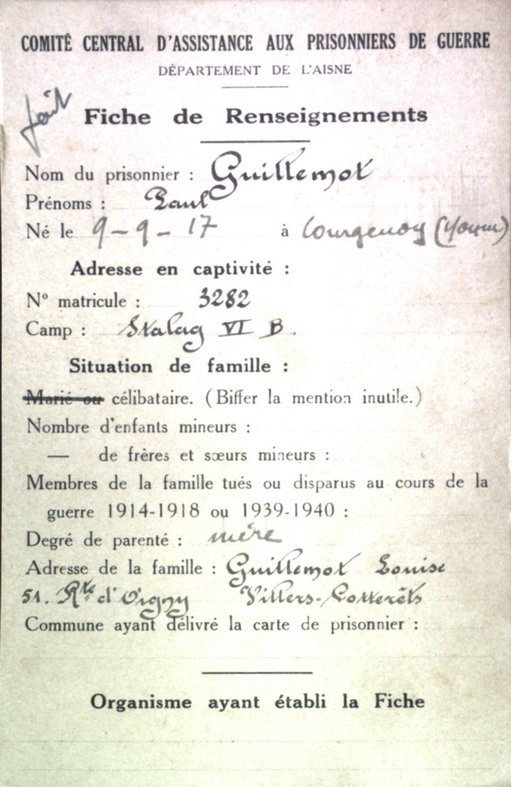 COMITÉ CENTRAL D'ASSISTANCE AUX PRISONNIERS DE GUERRE
DÉPARTEMENT DE L'AISNE
fait
Fiche de Renseignements
Nom du prisonnier : Guillemot
Prénoms : Paul
Né le 9-9-17 à Courgenay (Yonne)
Adresse en captivité :
N° matricule : 3282
Camp : Stalag VI B.
Situation de famille :
Marié ou célibataire. (Biffer la mention inutile.)
Nombre d'enfants mineurs :
— de frères et sœurs mineurs :
Membres de la famille tués ou disparus au cours de la
guerre 1914-1918 ou 1939-1940 :
Degré de parenté : mère
Adresse de la famille : Guillemot Louise
51. Rte d'Oigny Villers-Cotterêts
Commune ayant délivré la carte de prisonnier :
Organisme ayant établi la Fiche